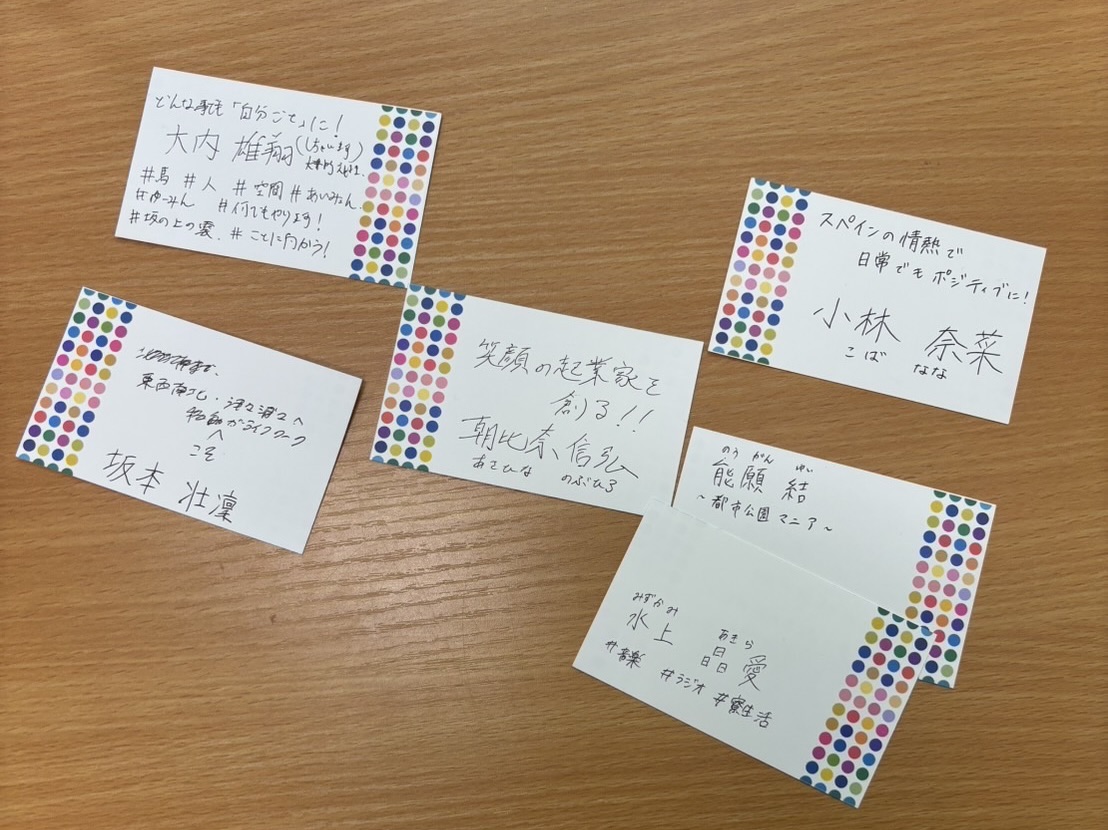 どんな事も「自分ごと」に!
大内 雄翔(しちゃいます)
#馬 #人 #空間 #あいみょん
#ゆーみん #何でもやります!
#坂の上の雲 #ことに向かう!
スペインの情熱で
日常でもポジティブに!
小林 奈菜
こば なな
東西南北・津々浦々へ
移動がライフワーク
こそ
坂本 壮凛
笑顔の起業家を
創る!!
朝比奈 信弘
あさひな のぶひろ
のう がん ゆい
能願 結
~都市公園マニア~
みずかみ あきら
水上 晶愛
#音楽 #ラジオ #寮生活